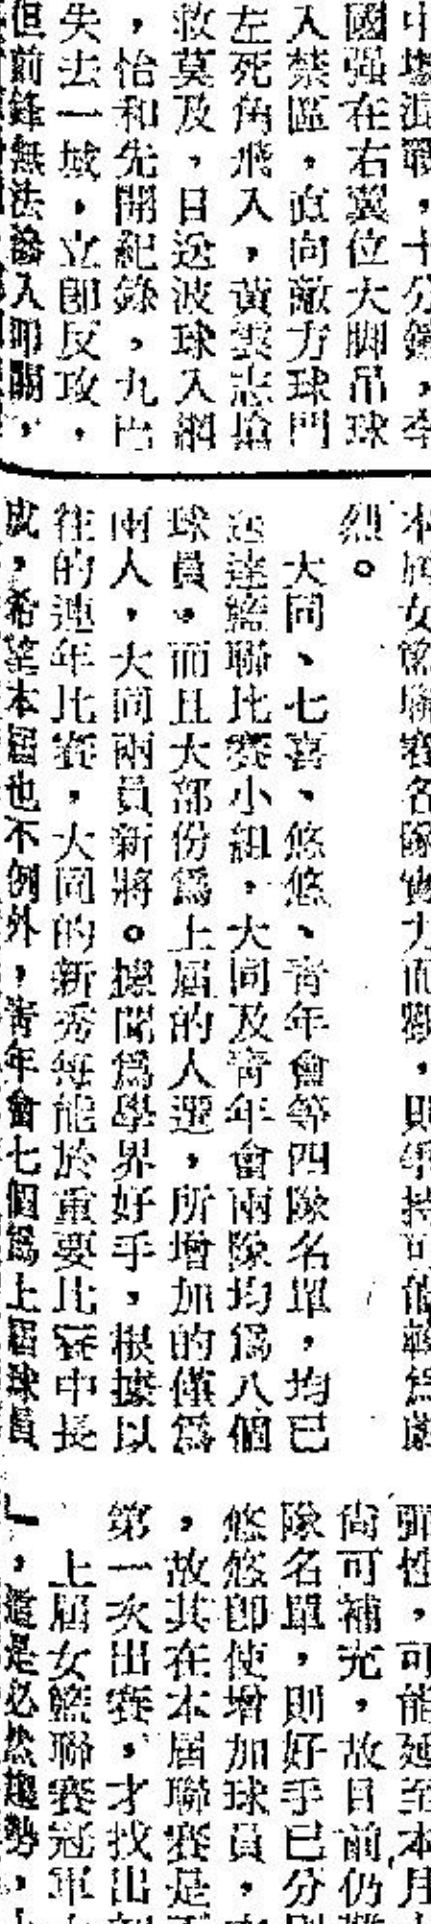 中場混戰，十分鐘，李
國強在右翼位大脚吊球
入禁區，直向敵方球門
左死角飛入，黃雲志搶
救莫及，目送波球入網
，怡和先開紀錄，九巴
失去一城，立卽反攻，
但前鋒無法滲入叩關，
本屆女籃聯賽各隊實力而觀，則爭持可能轉為劇
烈。
大同、七喜、悠悠、青年會等四隊名單，均已
送達籃聯比賽小組，大同及青年會兩隊均爲八個
球員。而且大部份爲上屆的人選，所增加的僅爲
兩人，大同兩員新將。據聞爲學界好手，根據以
往的連年比賽，大同的新秀每能於重要比賽中長
成，希望本屆也不例外，青年會七個爲上屆球員
彈性，可能延至本月
尚可補充，故目前仍
隊名單，則好手已分
悠悠卽使增加球員，
，故其在本屆聯賽是
第一次出賽，才找出
上屆女籃聯賽冠軍
，這是必然趨勢，